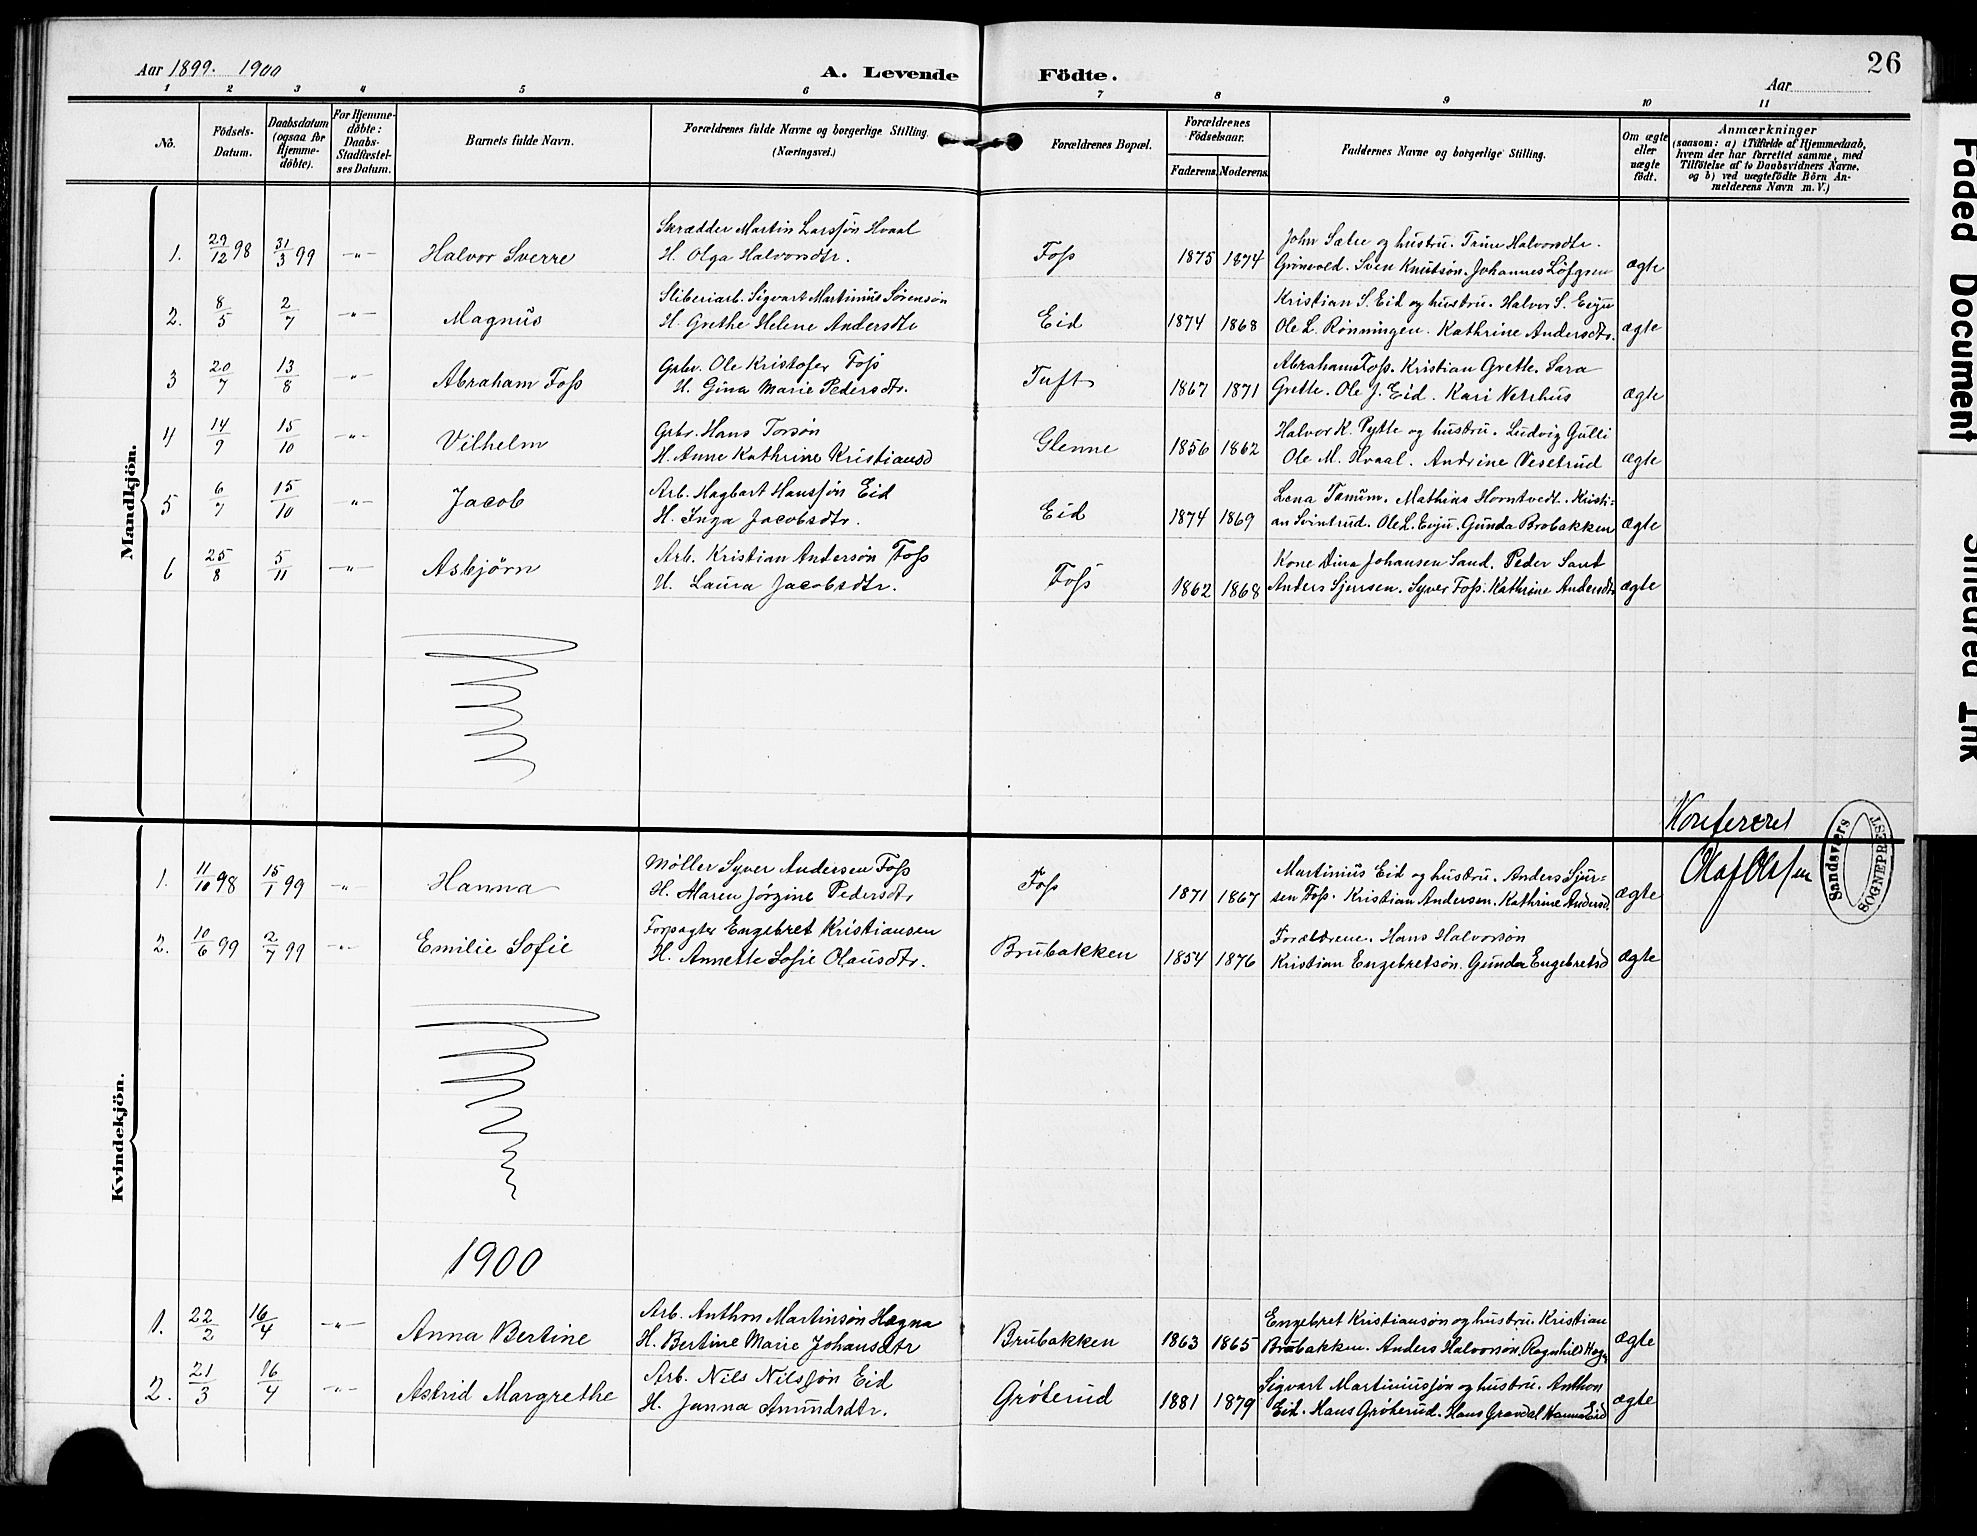 Aar 1899. 1900
A. Levende Födte.
Aar
26
1 2 3 4 5 6 7 8 9 10 11
No.
Födsels-Datum.
Daabsdatum (ogsaa for Hjemme-döbte).
For Hjemme-döbte: Daabs-Stadfæstel-ses Datum.
Barnets fulde Navn.
Forældrenes fulde Navne og borgerlige Stilling. (Næringsvei.)
Forældrenes Bopæl.
Forældrenes Födselsaar.
Faderens. Moderens.
Faddernes Navne og borgerlige Stilling.
Om ægte eller uægte födt.
Anmærkninger
(saasom: a) i Tilfælde af Hjemmedaab,
hvem der har forrettet samme, med
Tilföielse af to Daabsvidners Navne.
og b) ved uægtefödte Börn An-
melderens Navn m. V.)
Mandkjön.
1. 29/12 98 31/3 99 -"- Halvor Sverre
Skrædder Martin Larssön Hvaal
H. Olga Halvorsdtr.
Foss 1875 1874
John Sætre og hustru. Trine Halvorsdtr.
Grönvold. Sven Knutsön. Johannes Löfgren
ægte
2. 8/5 2/7 -"- Magnus
Sliberiarb. Sigvart Martinius Sörensön
H. Grethe Helene Andersdtr
Eid 1874 1868
Kristian S. Eid og hustru. Halvor S. Evju
Ole L. Rönningen. Kathrine Andersdtr.
ægte
3 20/7 13/8 -"- Abraham Foss
Grbr. Ole Kristofer Foss
H. Gina Marie Pedersdtr.
Tuft 1867 1871
Abraham Foss. Kristian Grette. Sara
Grette. Ole J. Eid. Kari
ægte
4 14/9 15/10 -"- Vilhelm
Grbr. Hans Torsön
H. Anne Kathrine Kristiansd
Glenne 1856 1862
Halvor K. Pytte og hustru. Ludvig Gulli
Ole M. Hvaal. Andrine Vesetrud
ægte
5 6/7 15/10 -"- Jacob
Arb. Hagbart Hanssön Eid
H. Inga Jacobsdtr.
Eid 1874 1869
Lena Tanum. Mathias Horntvedt. Kristi-
an Svintrud. Ole L. Evju. Gunda Brobakken
ægte
6 25/8 5/11 -"- Asbjörn
Arb. Kristian Andersön Foss
H. Laura Jacobsdtr.
Foss 1862 1868
Kone Dina Johansen Sand. Peder Sant
Anders Sjursen. Syver Foss. Kathrine Andersdtr
ægte
Konfereret
Olaf Olafsen
Sandsværs
SOGNEPREST
Kvindekjön.
1. 11/10 98 15/1 99 -"- Hanna
Möller Syver Andersen Foss
H. Maren Jörgine Pedersdtr
Foss 1871 1867
Martinius Eid og hustru. Anders Sjur-
sen Foss. Kristian Andersen. Kathrine Andersd.
ægte
2. 10/6 99 2/7 99 -"- Emilie Sofie
Forpagter Engebret Kristiansen
H. Annette Sofie Olausdtr.
Brubakken 1854 1876
Forældrene. Hans Halvorsön
Kristian Engebretsön. Gunda Engebretsd
ægte
1900
1. 22/2 16/4 -"- Anna Bertine
Arb. Anthon Martinsön Hægna
H. Bertine Marie Johansdtr
Brubakken 1863 1865
Engebret Kristiansön og hustru. Kristian
Brubakken. Anders Halvorsön. Ragnhild
ægte
2. 21/3 16/4 -"- Astrid Margrethe
Arb. Nils Nilssön Eid
H. Janna Amundsdtr.
Gröterud 1881 1879
Sigvart Martiniussön og hustru. Anthon
Eid. Hans Gröterud. Hans Gravdal Hanna Eid
ægte
Faded Document
Smeared Ink